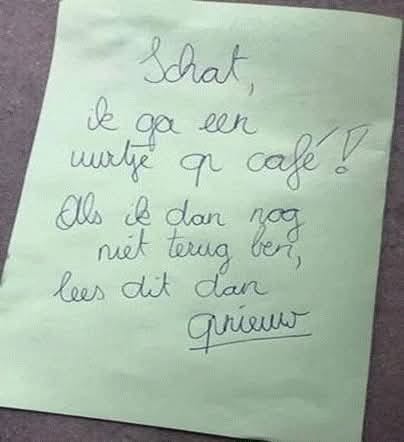 Schat,
ik ga een
uurtje op café!
Als ik dan nog
niet terug ben,
lees dit dan
opnieuw